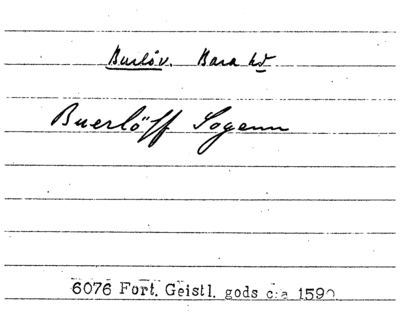 Burlöv. Bara hd
Buerlöff Sogenn
6076 Fort. Geistl. gods c:a 1590